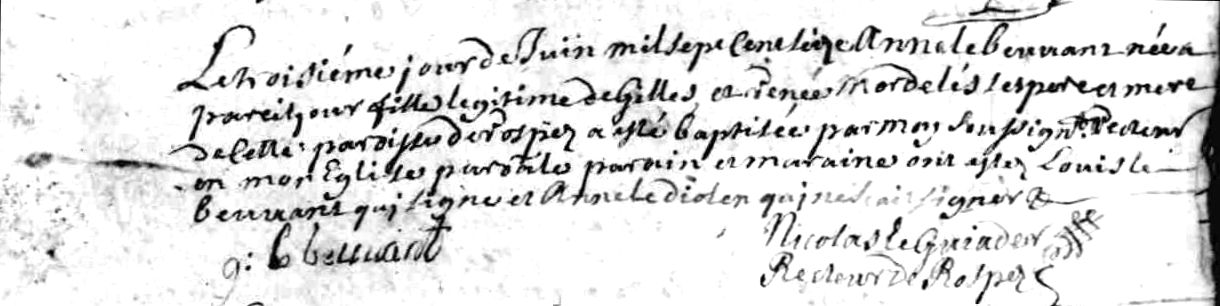 Le troisiéme jour de Juin mil sept Cent seize Anne le beuvant née a
pareil jour fille legitime de Gilles et renée Mordelés ses pere et mere
de Cette paroisse de rospez a esté baptisée par moy soussigné Recteur
en mon Eglise paroale parain et maraine ont estez Louis le
beuvant qui signe et Anne le diolen qui ne scait signer &
le beuvant
Nicolas le Guiader
Recteur de Rospez